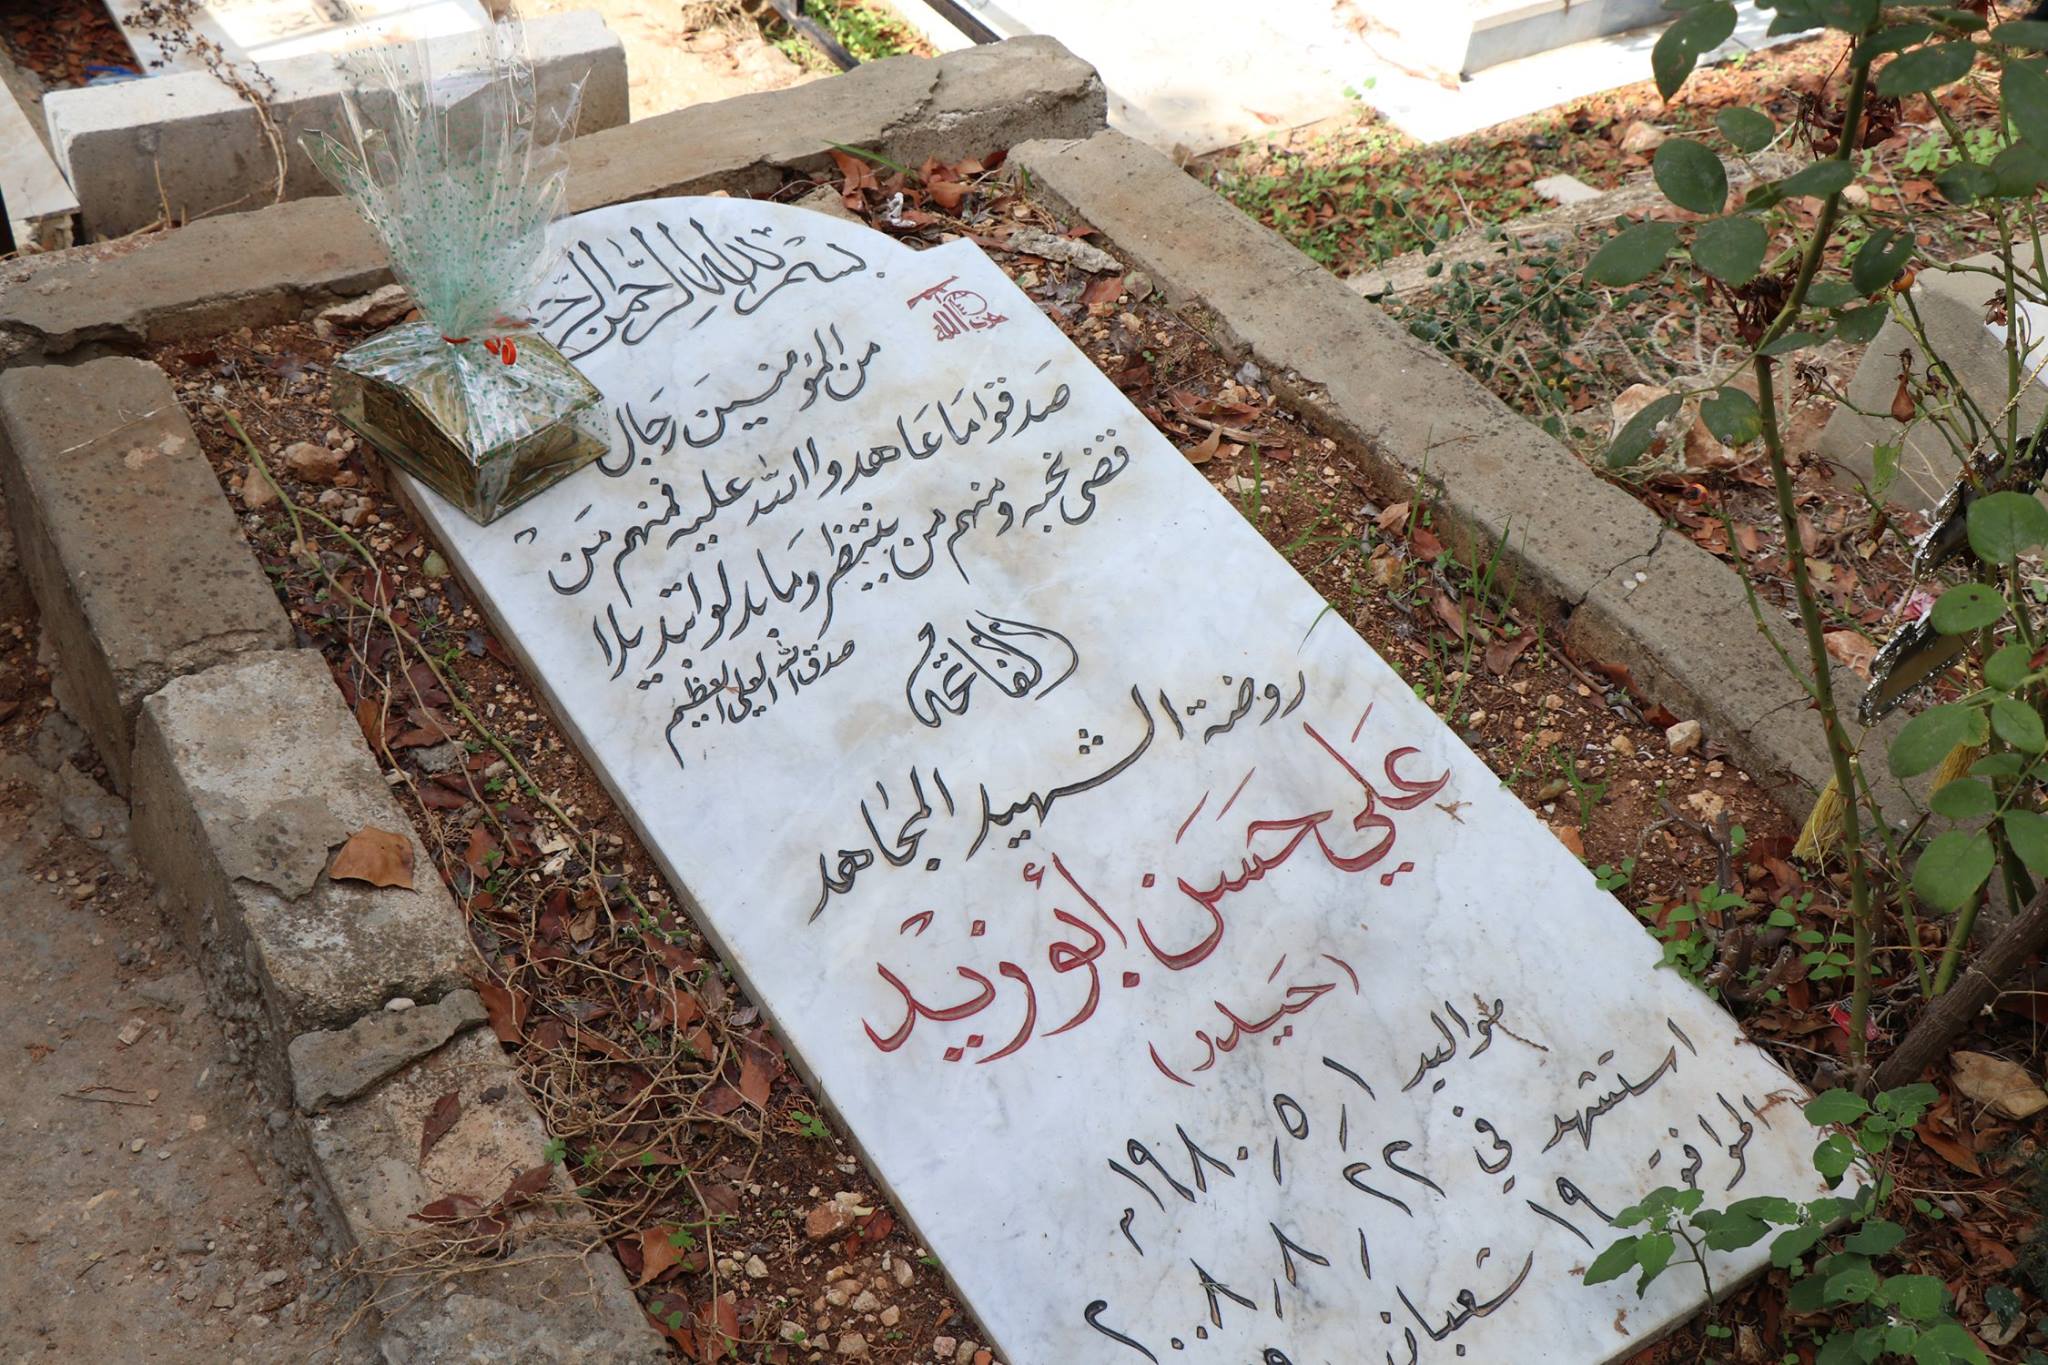 بسم الله الرحمن الرحيم
حزب الله
من المؤمنين رجال
صَدقوا مَا عَاهدوا الله عليه فمنهم مَن
قضى نحبه ومنهم من ينتظر ومَا بدلوا تبديلا
صدق الله العلي العظيم
الفاتحة
روضة الشهيد المجاهد
عَلي حَسَن أبو زيد
(حَيدر)
مواليد ١/٥/١٩٨٠م
استشهد في ٢٢/٨/٢٠٠٨
الموافق ١٩ شعبان